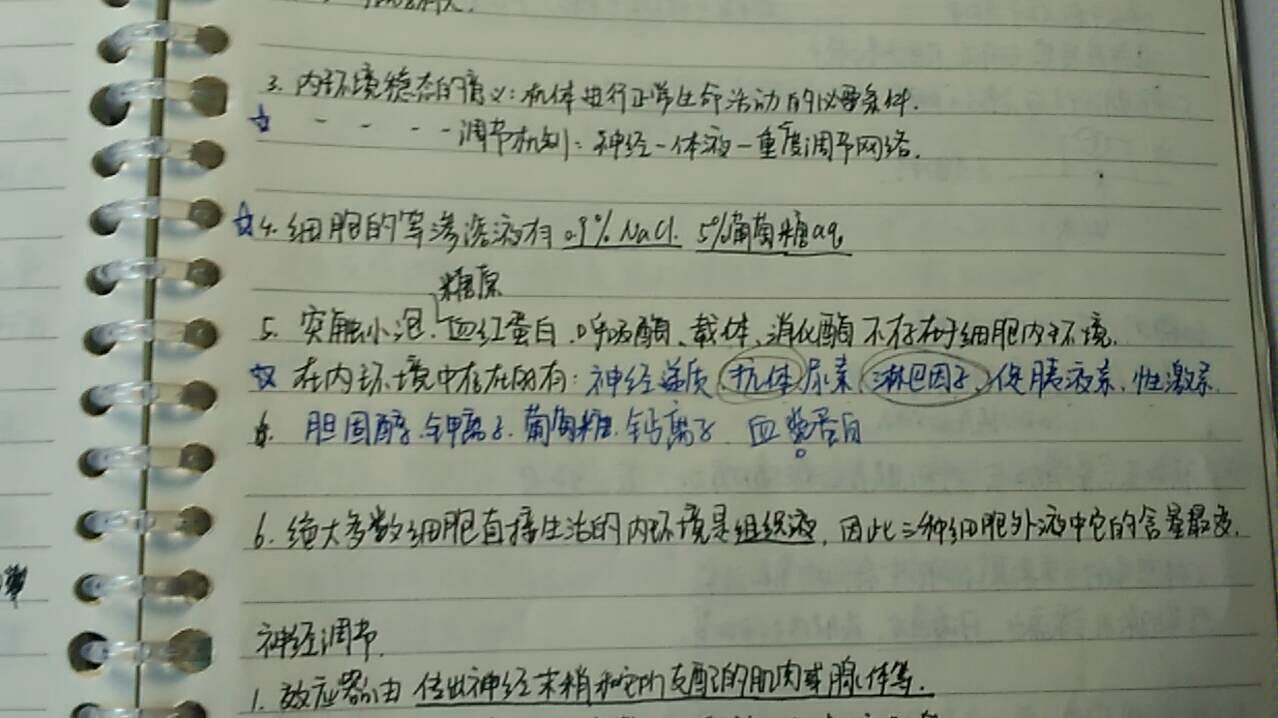 3. 内环境稳态的意义:机体进行正常生命活动的必要条件.
☆ - - - -调节机制:神经-体液-重度调节网络.
☆4. 细胞的等渗溶液有 0.9% NaCl. 5%葡萄糖aq
糖原
5. 突触小泡.血红蛋白.呼吸酶、载体、消化酶 不存在于细胞内环境.
☆ 在内环境中存在的有:神经递质、抗体、尿素、淋巴因子、促胰液素、性激素
胆固醇.钾离子.葡萄糖.钙离子 血浆蛋白
6. 绝大多数细胞直接生活的内环境是组织液,因此三种细胞外液中它的含量最多.
神经调节.
1. 效应器由 传出神经末梢和它所支配的肌肉或腺体等.